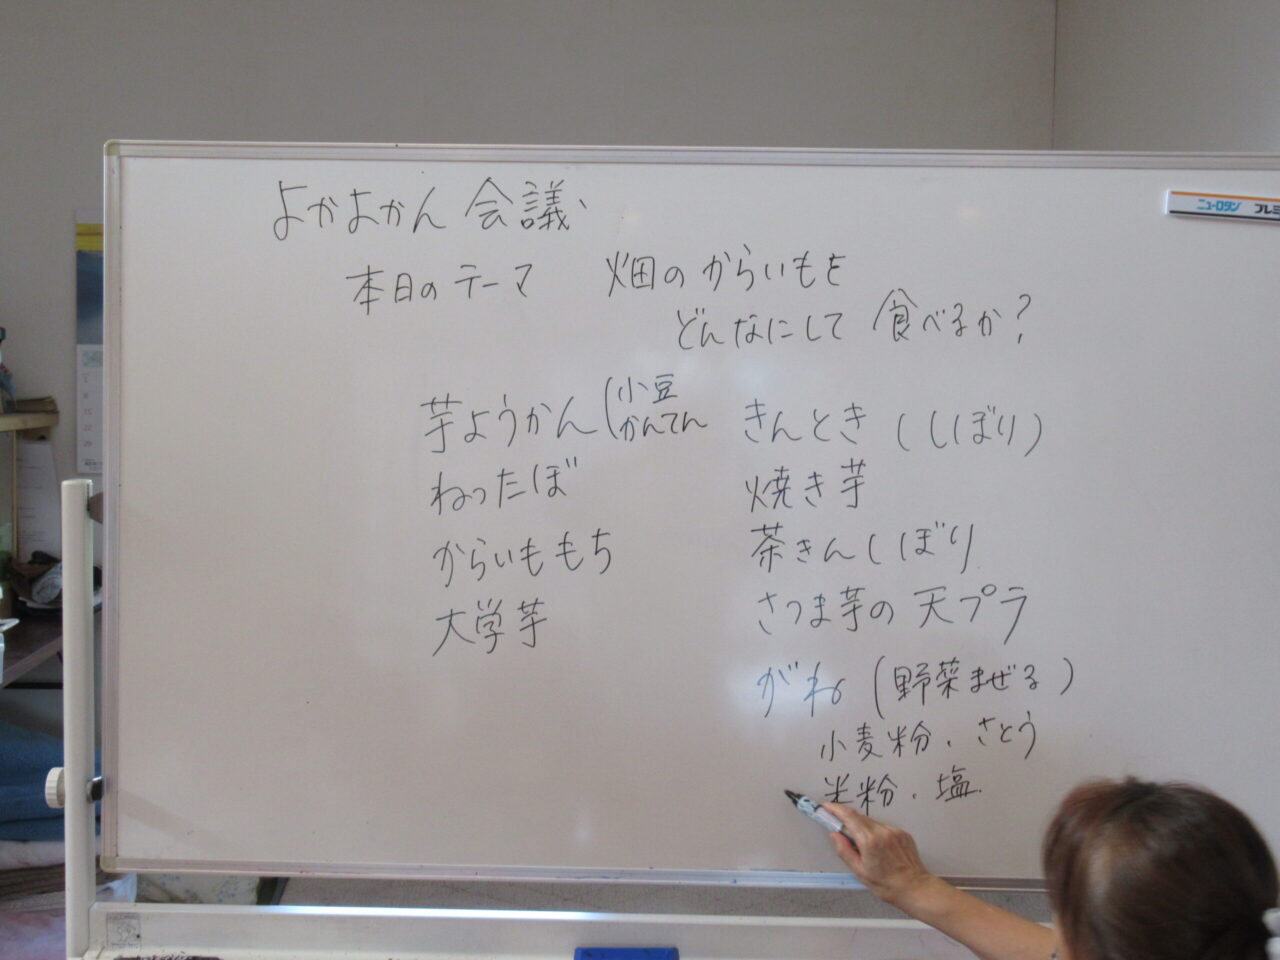 よかよかん会議
本日のテーマ 畑のからいもを
どんなにして食べるか?
芋ようかん(小豆
かんてん
ねったぼ
からいももち
大学芋
きんとき(しぼり)
焼き芋
茶きんしぼり
さつま芋の天プラ
がね(野菜まぜる)
小麦粉、さとう
米粉、塩
ニューロタン プレミ